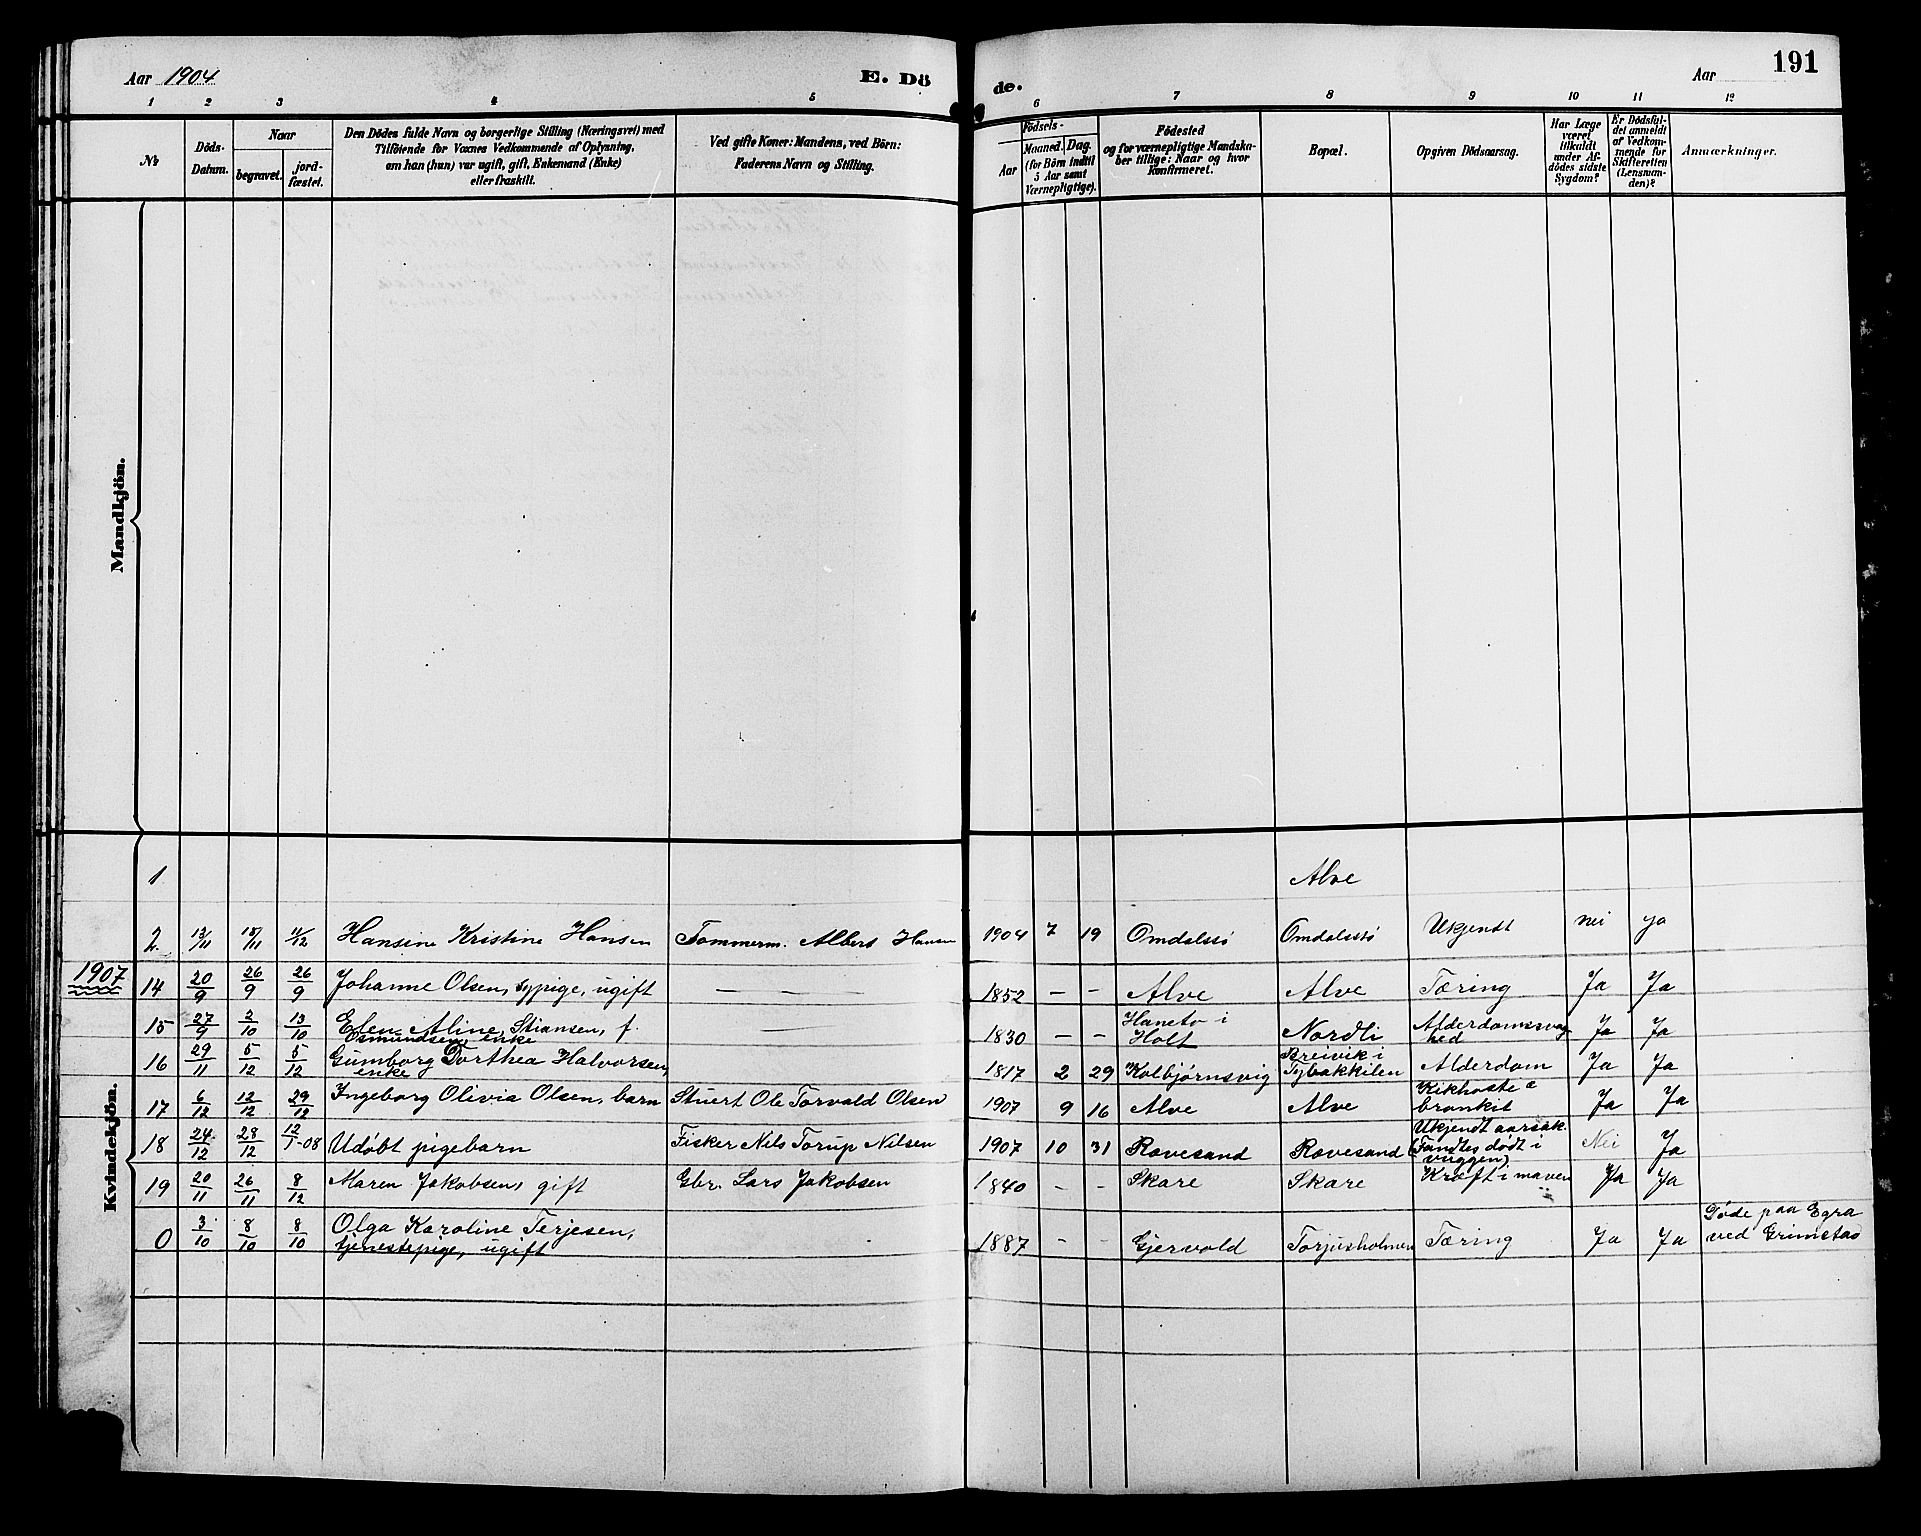 Aar 1904
E. Dö
de.
Aar
191
1 2 3 4 5 6 7 8 9 10 11 12
No
Döds-
Datum.
Naar
begravet.
jord-
fæstet.
Den Dödes fulde Navn og borgerlige Stilling (Næringsvei) med
Tilföiende for Voxnes Vedkommende af Oplysning,
om han (hun) var ugift, gift, Enkemand (Enke)
eller fraskilt.
Ved gifte Koner: Mandens, ved Börn:
Faderens Navn og Stilling.
Födsels-
Aar
Maaned.
Dag.
(for Börn indtil
5 Aar samt
Værnepligtige).
Födested
og for værnepligtige Mandska-
ber tillige: Naar og hvor
konfirmeret.
Bopæl.
Opgiven Dödsaarsag.
Har Læge
været
tilkaldt
under Af-
dödes sidste
Sygdom?
Er Dödsfal-
det anmeldt
af Vedkom-
mende for
Skifteretten
(Lensman-
den)?
Anmærkninger.
Mandkjön.
Kvindekjön.
1 Alve
2. 13/11 15/11 11/12 Hansine Kristine Hansen Tømmerm. Albert Hansen 1904 7 19 Omdalsstø Omdalsstø Ukjendt nei ja
1907
14 20/9 26/9 26/9 Johanne Olsen, sypige, ugift — — — 1852 – – Alve Alve Tæring Ja Ja
15 27/9 2/10 13/10 Elen Aline Stiansen, f.
Osmundsen, enke — — 1830 – – Haneto i
Holt Nordli Alderdomssvag
hed Ja Ja
16 29/11 5/12 5/12 Gumborg Dorthea Halvorsen,
enke 1817 2 29 Kolbjørnsvig Breivik i
Tybakkilen Alderdom Ja Ja
17 6/12 12/12 29/12 Ingeborg Olivia Olsen, barn Stuert Ole Torvald Olsen 1907 9 16 Alve Alve Kikhoste &
bronkit Ja Ja
18 24/12 28/12 12/1-08 Udøbt pigebarn Fisker Nils Torup Nilsen 1907 10 31 Rævesand Rævesand Ukjendt aarsak
(Fandtes dødt i
vuggen) Nei Ja
19 20/11 26/11 8/12 Maren Jakobsen, gift Gbr. Lars Jakobsen 1840 – – Skare Skare Kræft i maven Ja Ja
0 3/10 8/10 8/10 Olga Karoline Terjesen,
tjenestepige, ugift 1887 – – Gjervold Torjusholmen Tæring Ja Ja Døde paa Egra
ved Grimstad